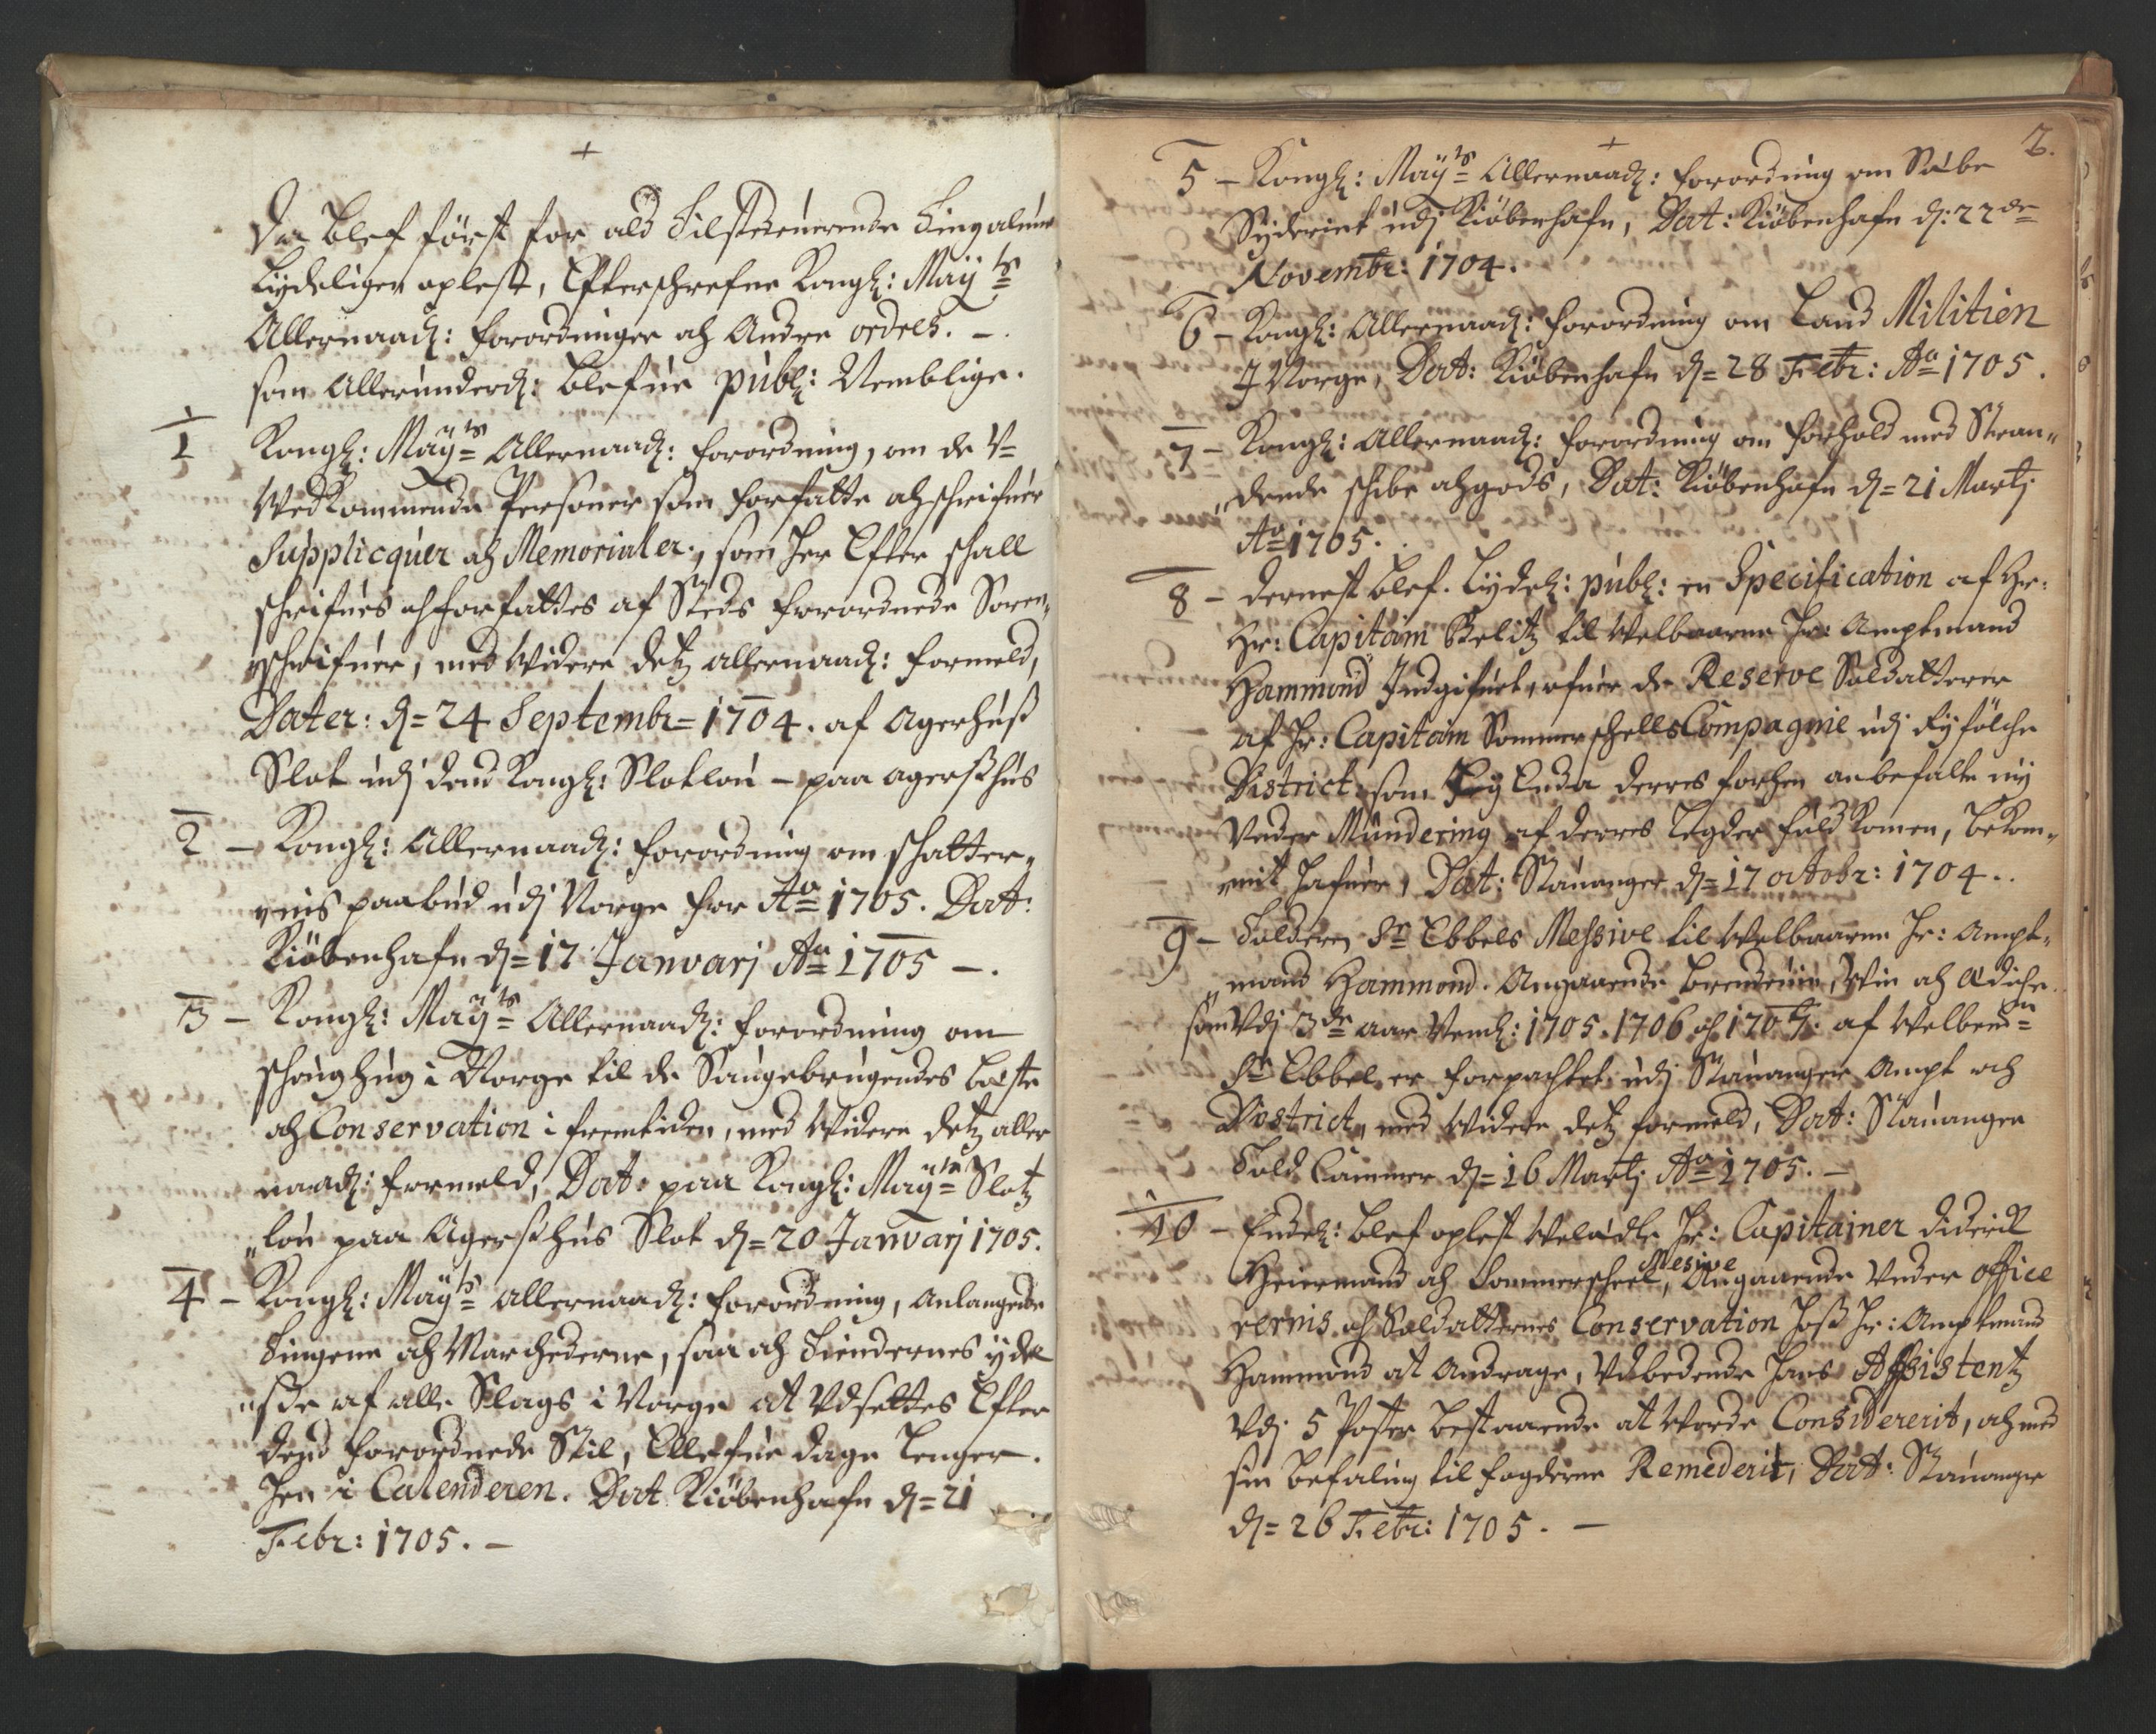 Da blef först for ald Tilstedeuerende Tingalmue
Lydeligen oplest, Efterschrefne Kongl: Mayts
Allernaad: forordninger och Andre ordrer. -.
som Allerunderd: blefue publ: Nemblige.
1 Kongl: Mayts Allernaad: forordning, om de V=
Vedkommende Personer som forfatte och schrifuer
Supplicquer och Memorialer, som her Efter schall
schrifues och forfattes af Steds forordnede Soren„
„schrifuer, med Videre detz allernaad: formeld,
Dater: d= 24 Septembr= 1704. af Agerhuss
Slot udj dend Kongl: Slotlou - paa agershuus
2 - Kongl: Allernaad: forordning om schatter„
„nis paabud udj Norge for Ao= 1705. Dat:
Kiöbenhafn d= 17 Januarj Ao= 1705 -.
3 - Kongl: Mayts Allernaad: forordning om
schoughug i Norge til de Saugebrugendes beste
och Conservation i fremtiden, med Videre detz aller
naad: formeld, Dat: paa Kongl: Mayts Slotz
„lou paa Agershuus Slot d= 20 Januarj 1705.
4 - Kongl: Mayts allernaad: forordning, Anlangende
Tingene och Marchederne, saa och Tiendernes ydel
„se af alle Slags i Norge at Udsettes Efter
Dend forordnede Stil, Ellefue dage lenger.
hen i Calenderen. Dat Kiöbenhafn d= 21
Febr: 1705. -
2.
5 - Kongl: Mayts Allernaad: forordning om Sæbe
Syderiet udj Kiöbenhafn, Dat: Kiöbenhafn d: 22de
Novembr: 1704.
6 - Kongl: Allernaad: forordning om Land Militien
J Norge, Dat: Kiöbenhafn d= 28 Febr: Ao= 1705.
7 - Kongl: Allernaad: forordning om forhold med Stran„
„dende schibe och gods, Dat: Kiöbenhafn d= 21 Martj
Ao= 1705.
8 - dernest blef. Lydel: publ: en Specification af Hr:
Hr: Capitain til Velbaarne Hr: Amptmand
Hammond Indgifuet, ofuer de Reserve Soldatterer
af Hr: Capitain Sommerschells Compagnie udj Ryfölche
District som Ey Enda derres forhen anbefalte ny
Under Mundering af derres Legder fuldkomen, bekom„
„mit hafuer, Dat: Stauanger d= 17 octobr: 1704..
9 - Tolderen Sr Ebbels Messive til Velbaarne Hr: Ampt„
„mand Hammond. Angaaende brendeuiin, Viin och Ædiche
som Vdj 3de aar Neml: 1705. 1706 och 1707. af Velbemte
Sr Ebbel er forpachtet udj Stauanger Ampt och
District, med Videre detz formeld, Dat: Stauanger
Told Cammer d= 16 Martj Ao= 1705. -
10 - Endel: blef oplest Veledle Hr: Capitainer Diderich
Heiermand och Sommerscheel, Mesive Angaaende Under office
rernis och Soldatternes Conservation hoss Hr: Amptmand
Hammond at Andrage, Udbedende hans Assistentz
Vdj 5 Poster bestaaende at Vorde Considererit, och med
sin befaling til fogderne Remederit, Dat: Stauanger
d= 26 Febr: 1705. -